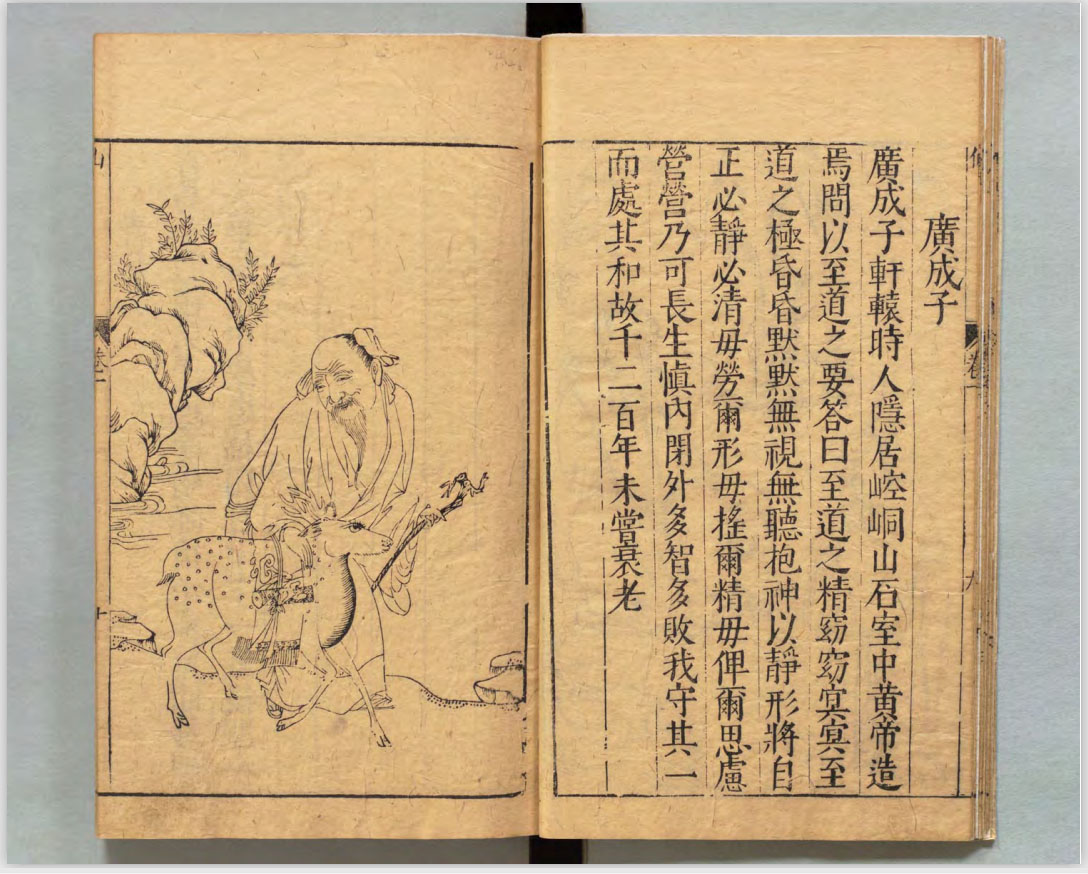 廣成子
廣成子軒轅時人隱居崆峒山石室中黃帝造
焉問以至道之要答曰至道之精窈窈冥冥至
道之極昏昏默默無視無聽抱神以靜形將自
正必靜必清毋勞爾形毋搖爾精毋俾爾思慮
營營乃可長生慎內閉外多智多敗我守其一
而處其和故千二百年未嘗衰老
卷一